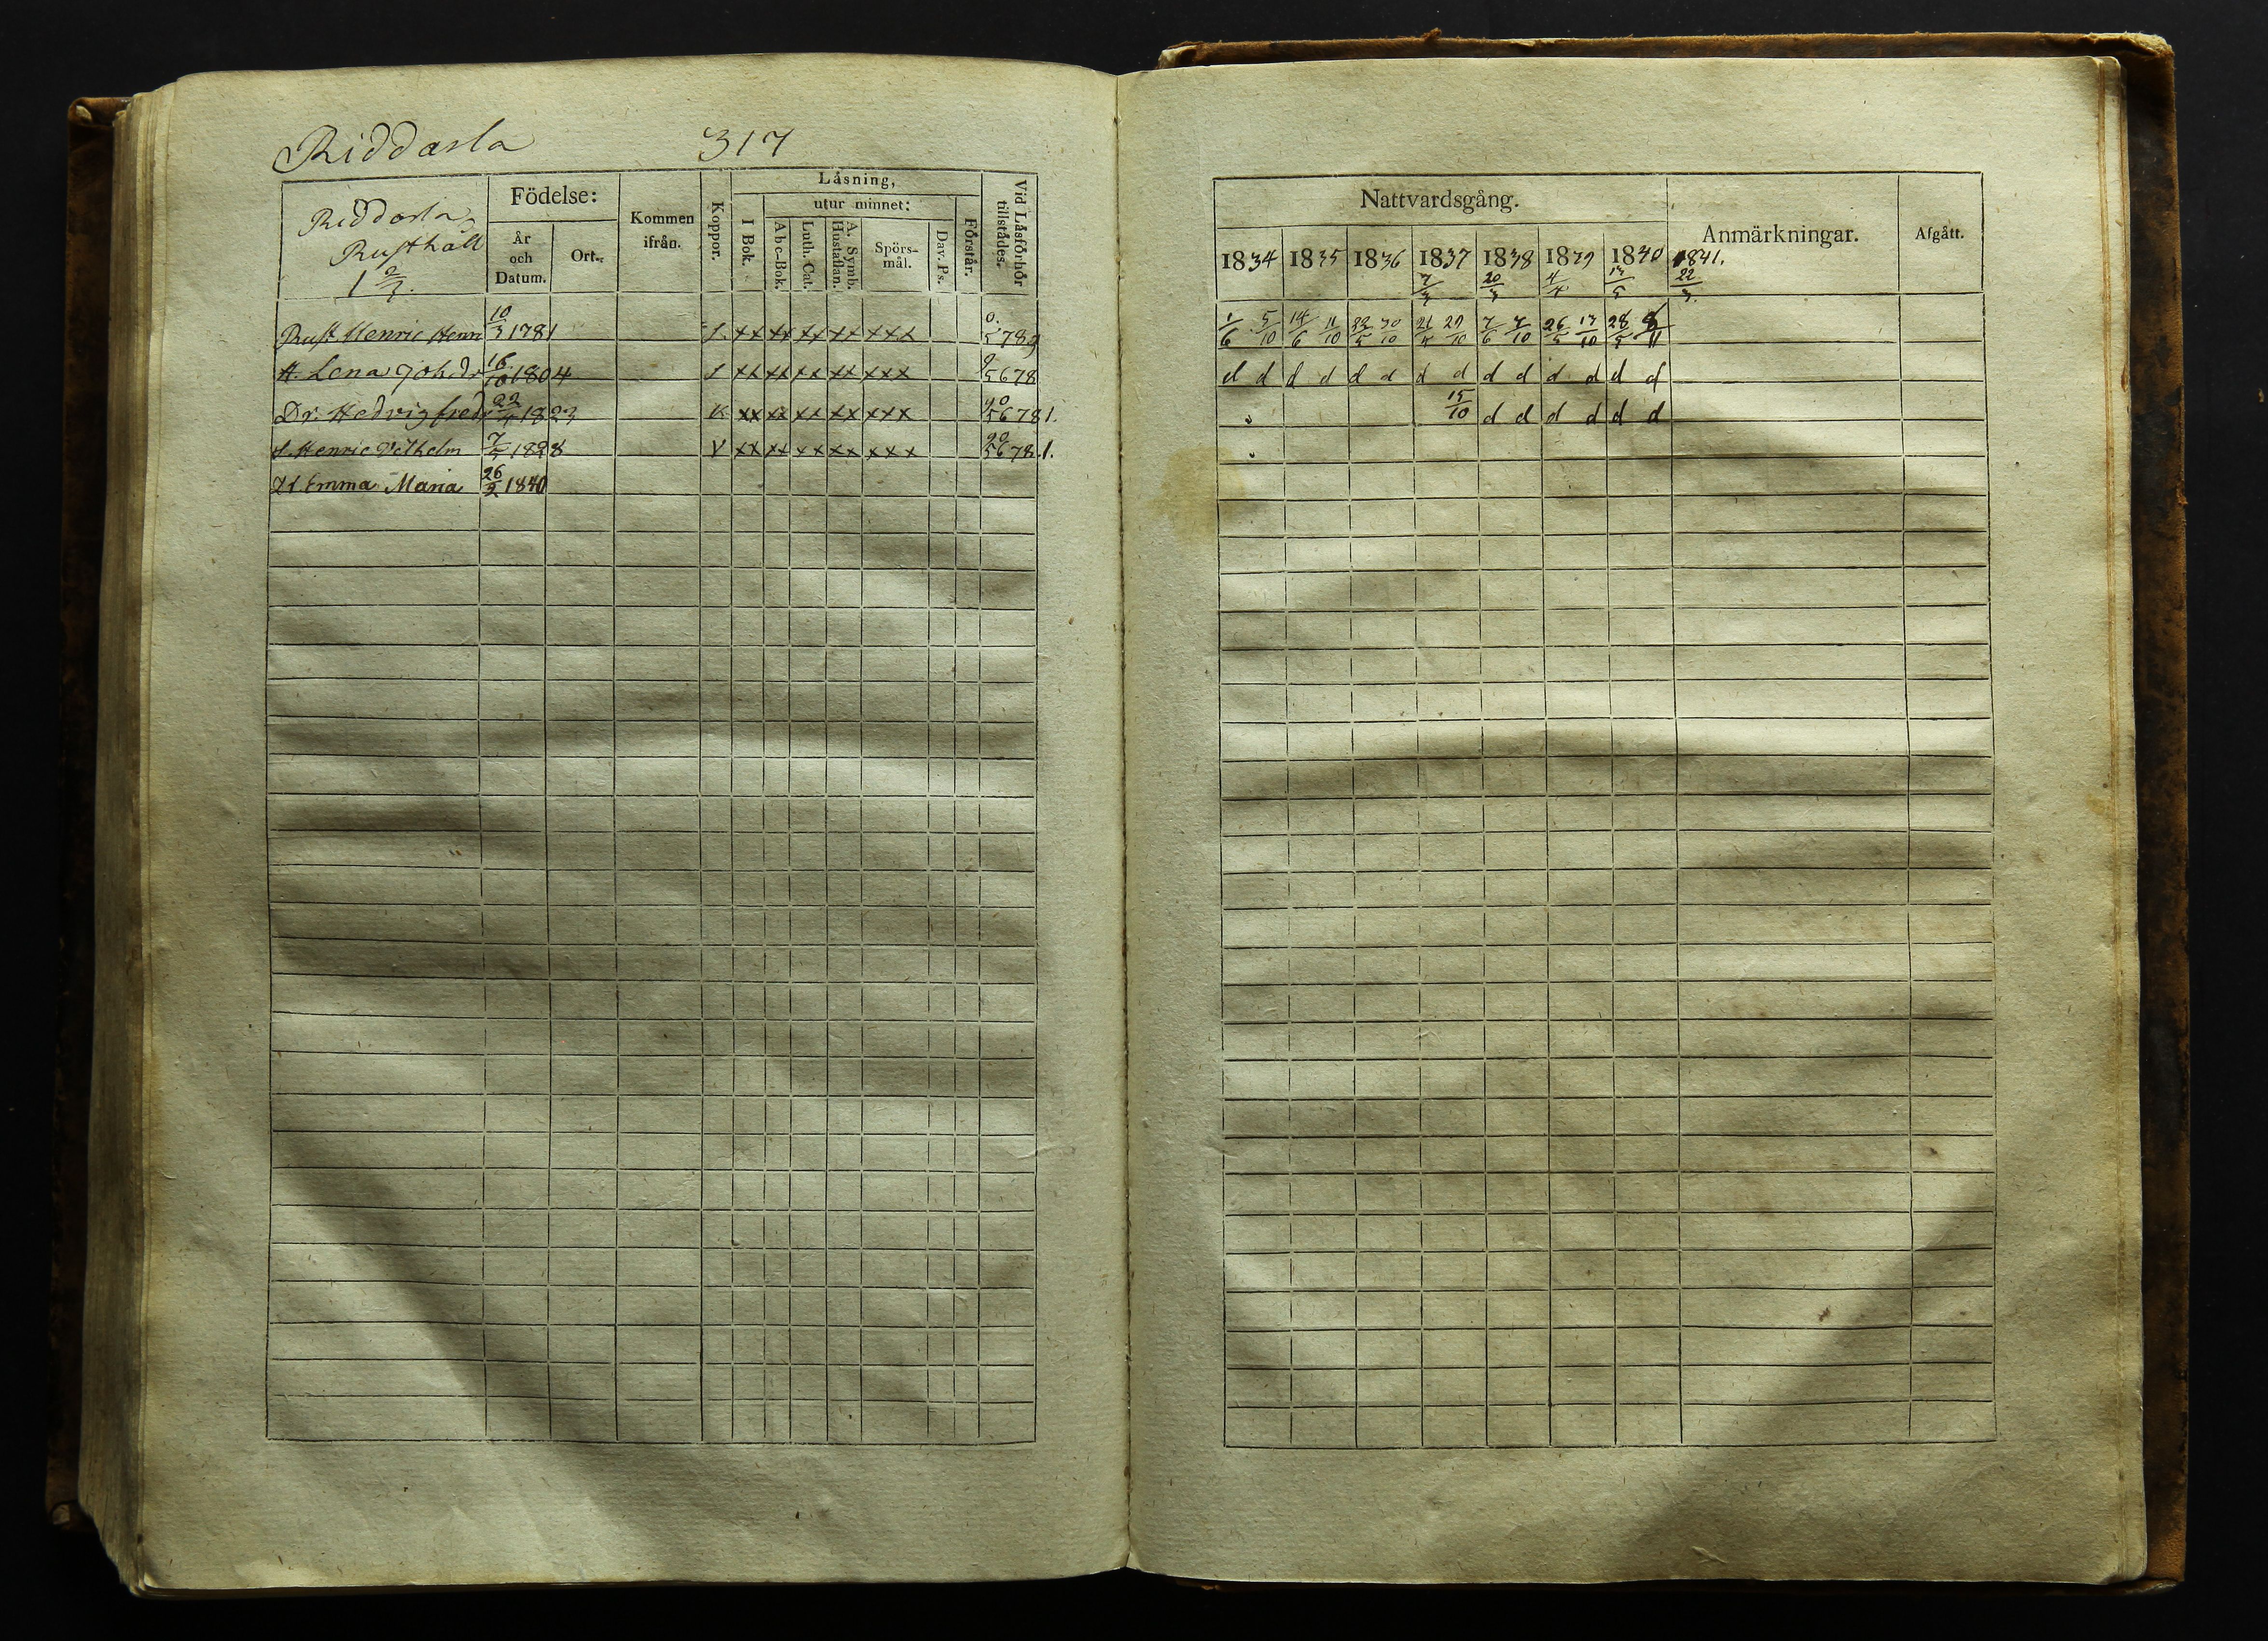 Riddasla 317
Riddasla
Rusthåll
1 2/3.
Födelse:
År och Datum.
Ort.
Kommen ifrån.
Koppor.
Låsning,
I Bok.
utur minnet:
Abc-Bok.
Luth. Cat.
A. Symb. Hustaflan.
Spörs-mål.
Dav. Ps.
Förstår.
Vid Låsförhör tillstådes.
Rust. Henric Henr 10/3 1781 xx xx xx xx xxx 789
H. Lena Joh.dr 16/10 1804 xx xx xx xx xxx 5678
Dr. Hedvig fred 1823 xx xx xx xx xxx 56781.
S. Henric Vilhelm 1828 V xx xx xx xx xxx 5678.1.
Dr. Emma Maria 26/2 1840
Nattvardsgång.
Anmärkningar.
Afgått.
1834 1835 1836 1837 1838 1839 1840 1841.
7/3 20/3 4/4 22/3
1/6 5/10 14/6 11/10 22/5 30/10 7/6 7/10 26/5 13/10 28/5 8/11
d d d d d d d d d d d d d d
15/10 d d d d d d